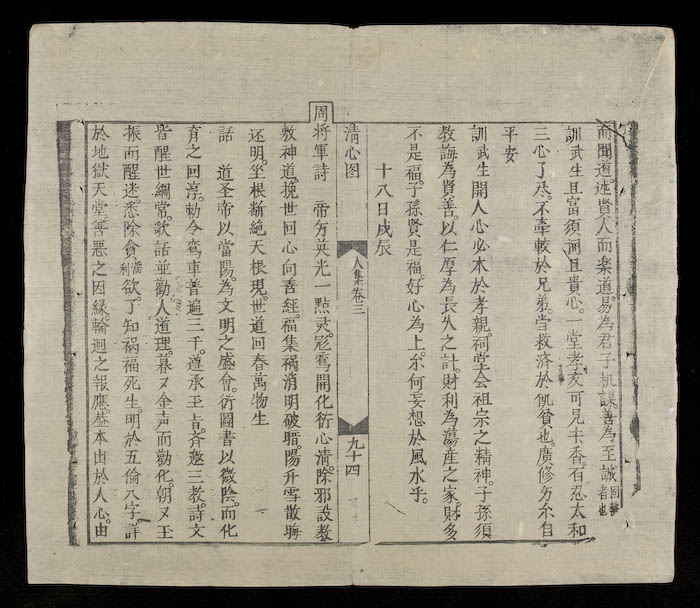 聞道。迷賢人而楽道。易為君子机謀。善為至誠
者也
訓武生且富須圖且貴心。一堂孝友可見香。百忍太和
三心了炁。不牽較於兄弟。當救済於飢貧也。廣修方尒自
平安
訓武生開人心必本於孝親。祠堂会祖宗之精神。子孫須
教誨為賢善。以仁厚為長久之計。財利為蕩産之家。財多
不是福。子孫賢是福。好心為上。尒何妄想於風水乎。
十八日戊辰
清心图
人集卷三
九十四
周
将軍詩 帝分英光一點灵。鸞開化衍心清。除邪設教
敷神道。挽世回心向善經。福集禍消明破暗。陽升雪散晦
还明。至根断絶天根現。世道回春萬物生
話 道圣帝以當陽。為文明之盛會。衍圖書以微陰。而化
育之回淳。勑今鸞車普遍三千。遵承玉旨。斉邀三教。詩文
皆醒世綱常。歌話並勸人道理。暮又金声而勤化。朝又玉
振而醒迷。悉除貪利欲。了知禍福死生。明於五倫八字。詳
於地獄天堂。善悪之因縁。輪迴之報應。葢本由於人心。由